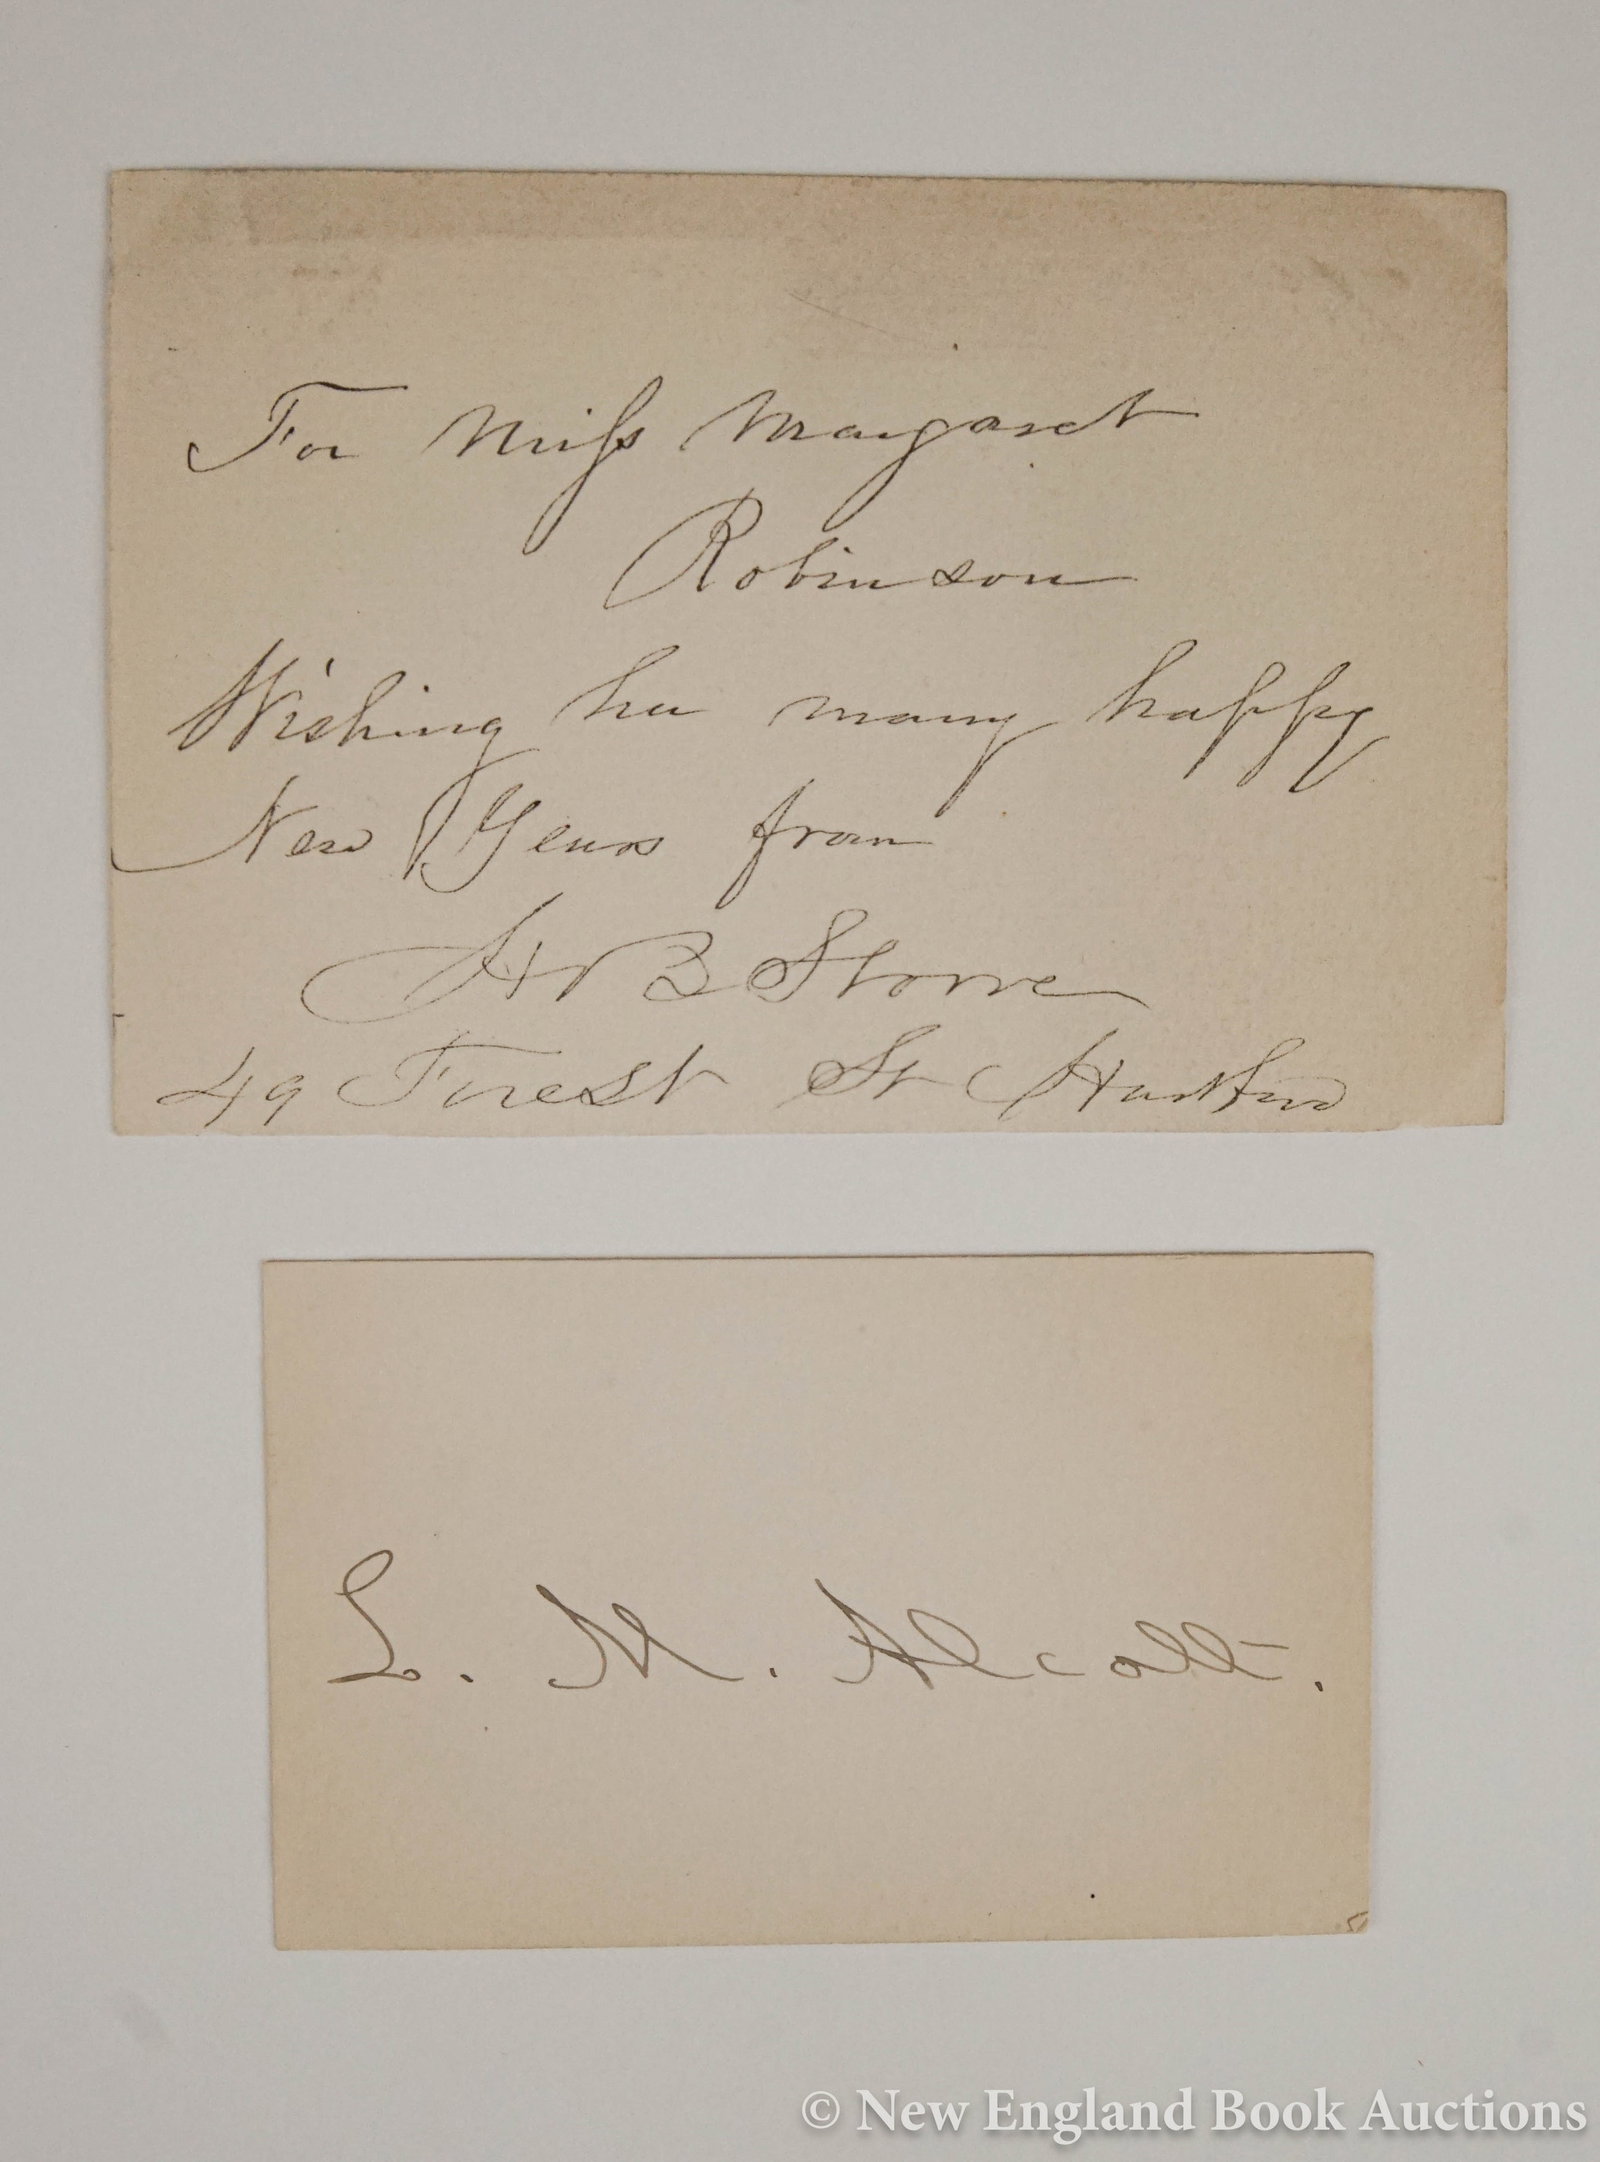 For Miss Margaret
Robinson
Wishing her many happy
New Years from
H B Stowe
49 Forest St Hartford
L. M. Alcott.
© New England Book Auctions